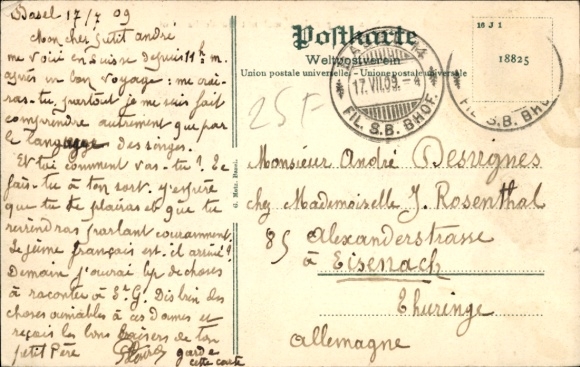 Basel 17/7 09
Mon cher petit andré
me voici en Suisse depuis 11h m.
après un bon voyage : me croi-
ras-tu, partout je me suis fait
comprendre autrement que par
le langage des singes.
Et toi comment vas-tu ? Te
fais-tu à ton sort. j'espère
que tu te plairas et que tu
reviendras parlant couramment.
Le jeune français est-il arrivé ?
Demain j'aurai bp de choses
à raconter à St G. Dis bien des
choses aimables à ces Dames et
reçois les bons baisers de ton
petit Père
garde
cette carte
Postkarte
Weltpostverein
Union postale universelle. - Unione postale universale
16 J 1
18825
17.VII.09.
FIL. S.B. BHOF.
FIL. S.B. BHOF.
25 F
G. Metz, Basel.
Monsieur André Desvignes
chez Mademoiselle J. Rosenthal
85 Alexanderstrasse
à Eisenach
Thuringe
Allemagne